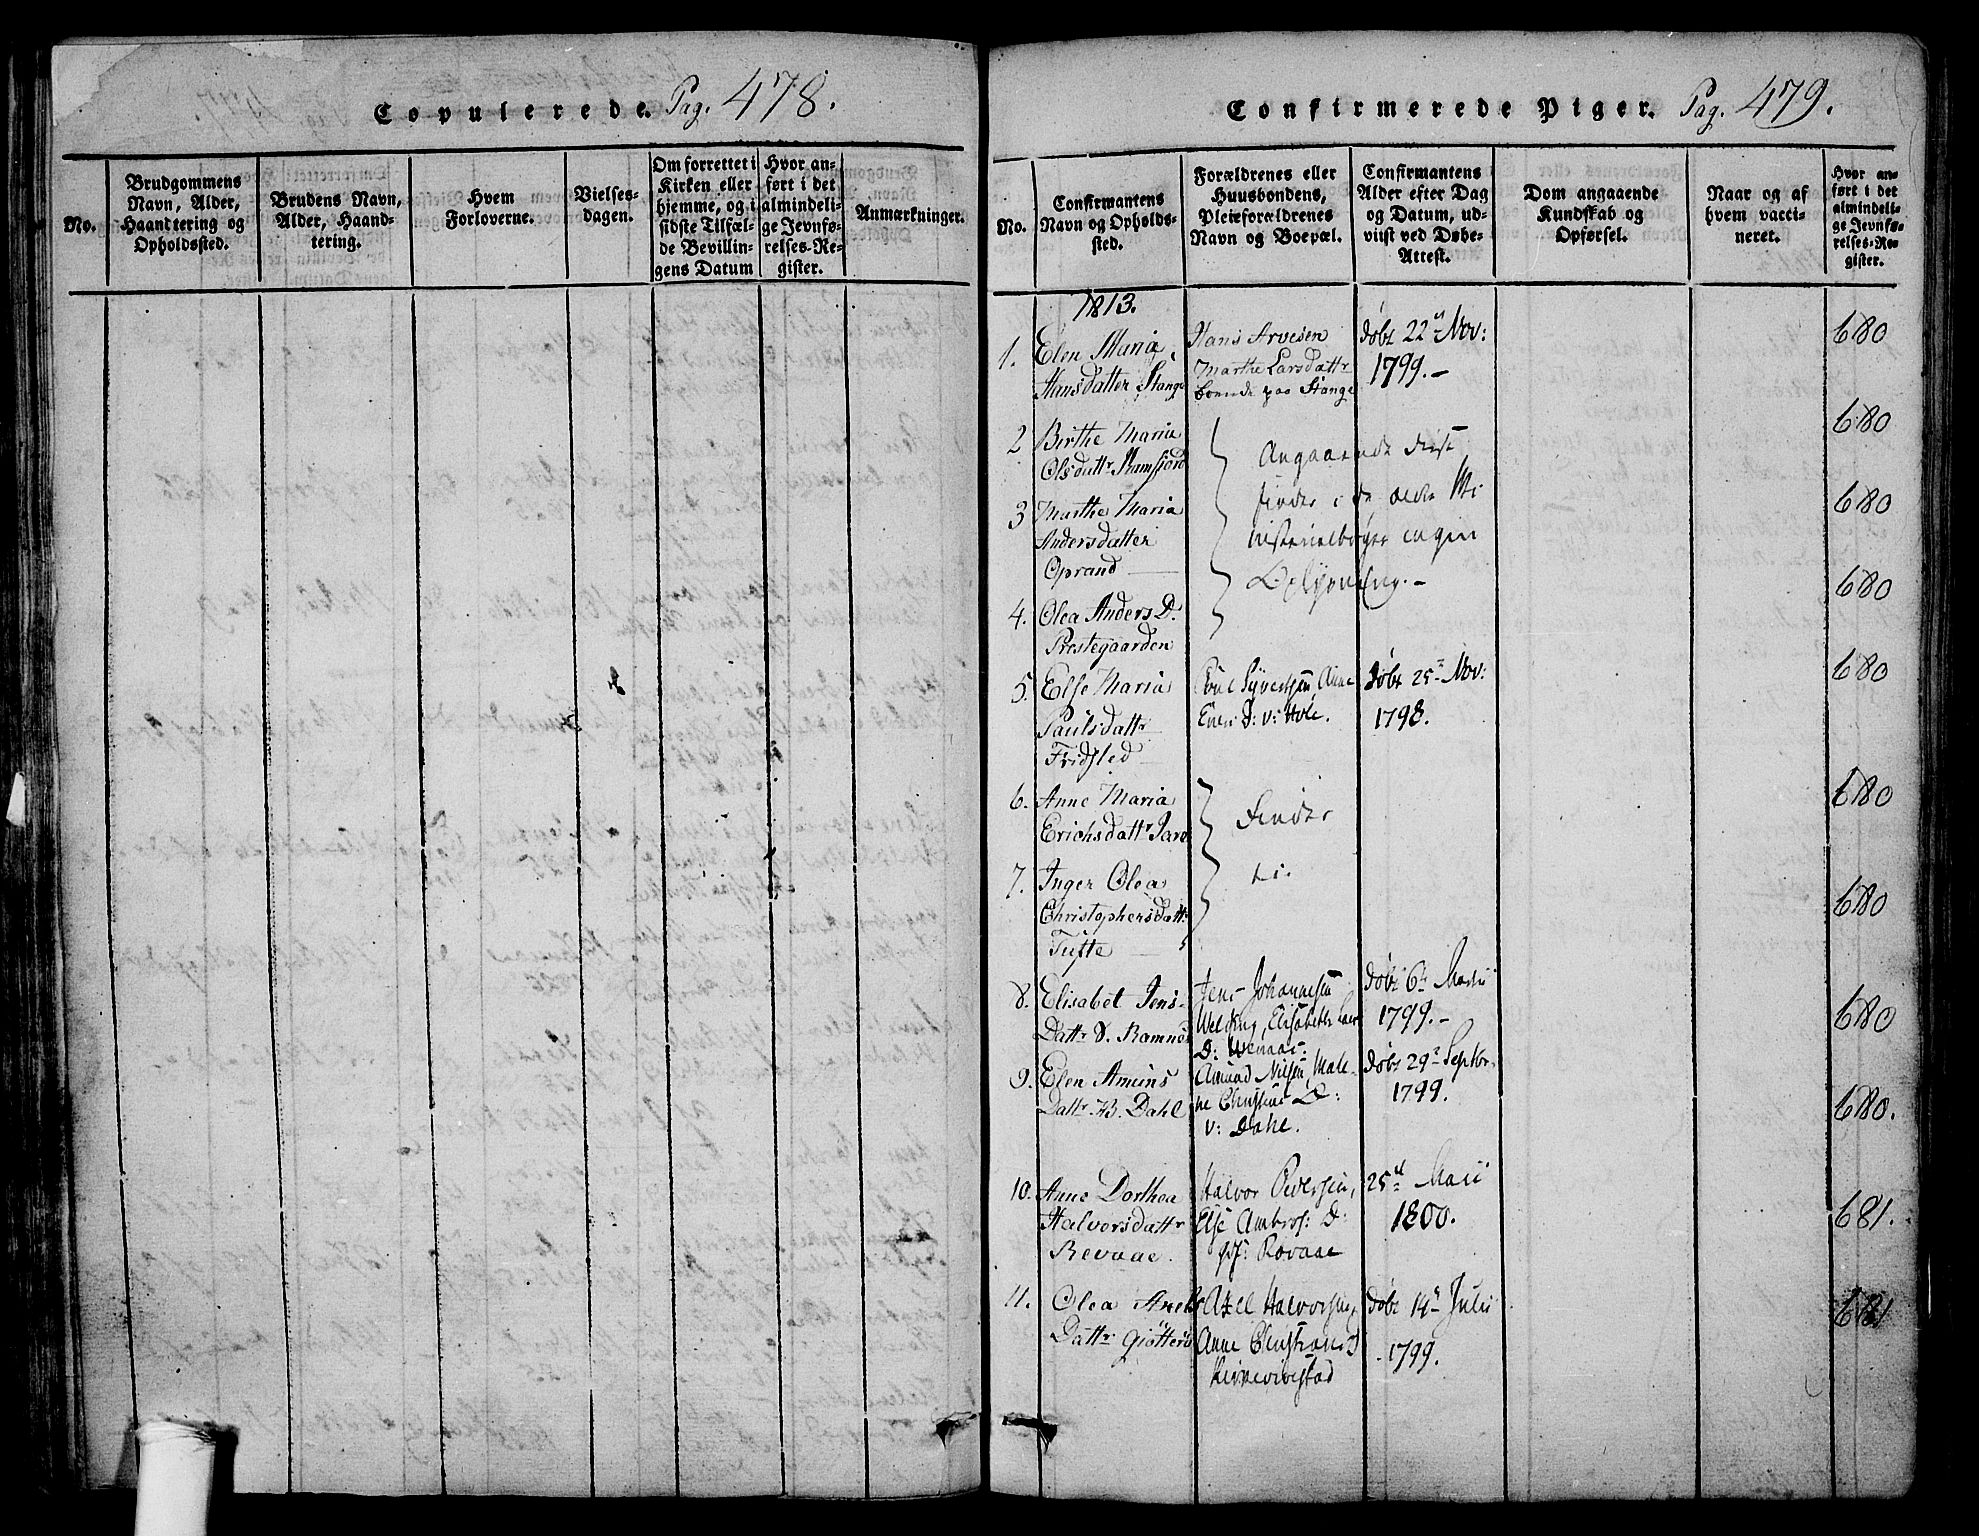 Copulerede. Pag. 478.
No.
Brudgommens
Navn, Alder,
Haandtering og
Opholdssted.
Brudens Navn,
Alder, Haand-
tering.
Hvem
Forloverne.
Vielses-
dagen.
Om forrettet i
Kirken eller
hjemme, og i
sidste Tilfæl-
de Bevillin-
gens Datum
Hvor an-
ført i det
almindeli-
ge Jevnfø-
relses-Re-
gister.
Anmærkninger.
Confirmerede Piger. Pag. 479.
No.
Confirmantens
Navn og Opholds-
sted.
Forældrenes eller
Huusbondens,
Pleieforældrenes
Navn og Boepæl.
Confirmantens
Alder efter Dag
og Datum, ud-
viist ved Døbe-
Attest.
Dom angaaende
Kundskab og
Opførsel.
Naar og af
hvem vacci-
neret.
Hvor an-
ført i det
almindeli-
ge Jevnfø-
relses-Re-
gister.
1813.
1. Elen Maria
Hansdatter Stange
Hans Arvesen
Marthe Larsdattr
boende paa Stange
døbt 22 Nov:
1799.-
680
2 Birthe Maria
Olsdattr Ramsjord
680
3 Marthe Maria
Andersdatter
Oprand
680
4. Olea Anders D.
Prestegaarden
680
Angaaende disse
findes i de ældre Mi
nisterialbøger ingen
Oplysning.-
5. Else Maria
Paulsdattr
Fridsled
Poul Syversen, Anne
D: v: Hole.
døbt 25 Nov:
1798.
680
6. Anne Maria
Erichsdattr
680
7. Inger Olea
Christophersdattr
Tufte
680
Findes
ei.
8. Elisabet Jens-
Dattr V. Ramnes
Jens Johannesen
Elisabeth
D:
døbt 6
1799.-
680
9. Elen Amuns
Dattr B. Dahl
Amund Nilsen, Male-
ne D:
v: Dahl.
døbt 29 Septbr.
1799.
680.
10. Anne Dorthea
Halvorsdattr
Revaae.
Halvor Pedersen,
Else Ambros: D:
Rovaae
25
1800.
681.
11. Olea Axels
Dattr Gjötterö
Axel Halvorsen,
Anne
døbt 14 Julii
1799.
681